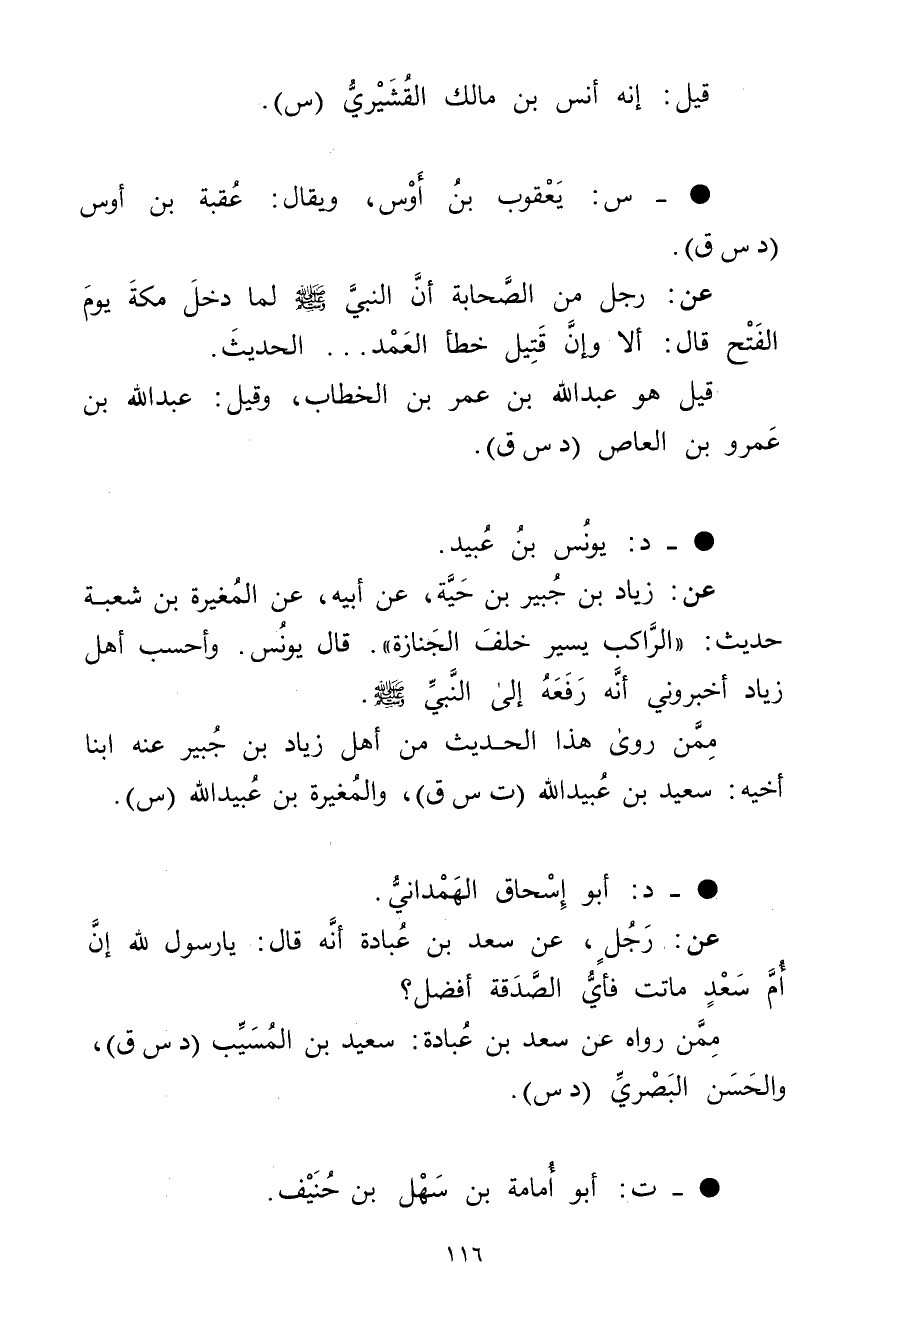 قيل: إنه أنس بن مالك القُشَيْريُّ (س).
● ـ س: يَعْقوب بنُ أَوْس، ويقال: عُقبة بن أوس
(د س ق).
عن: رجل من الصَّحابة أنَّ النبيَّ ﷺ لما دخلَ مكةَ يومَ
الفَتْح قال: ألا وإنَّ قَتِيل خطأ العَمْد... الحديثَ.
قيل هو عبدالله بن عمر بن الخطاب، وقيل: عبدالله بن
عَمرو بن العاص (د س ق).
● ـ د: يونُس بنُ عُبيد.
عن: زياد بن جُبير بن حَيَّة، عن أبيه، عن المُغيرة بن شعبة
حديث: «الرَّاكب يسير خلفَ الجَنازة». قال يونُس. وأحسب أهل
زياد أخبروني أنَّه رَفَعَهُ إلىٰ النَّبيِّ ﷺ.
مِمَّن روىٰ هذا الحديث من أهل زياد بن جُبير عنه ابنا
أخيه: سعيد بن عُبيدالله (ت س ق)، والمُغيرة بن عُبيدالله (س).
● ـ د: أبو إِسْحاق الهَمْدانيُّ.
عن: رَجُلٍ، عن سعد بن عُبادة أنَّه قال: يارسول لله إنَّ
أُمَّ سَعْدٍ ماتت فأيُّ الصَّدَقة أفضل؟
مِمَّن رواه عن سعد بن عُبادة: سعيد بن المُسَيِّب (د س ق)،
والحَسَن البَصْريِّ (د س).
● ـ ت: أبو أُمامة بن سَهْل بن حُنَيْف.
١١٦